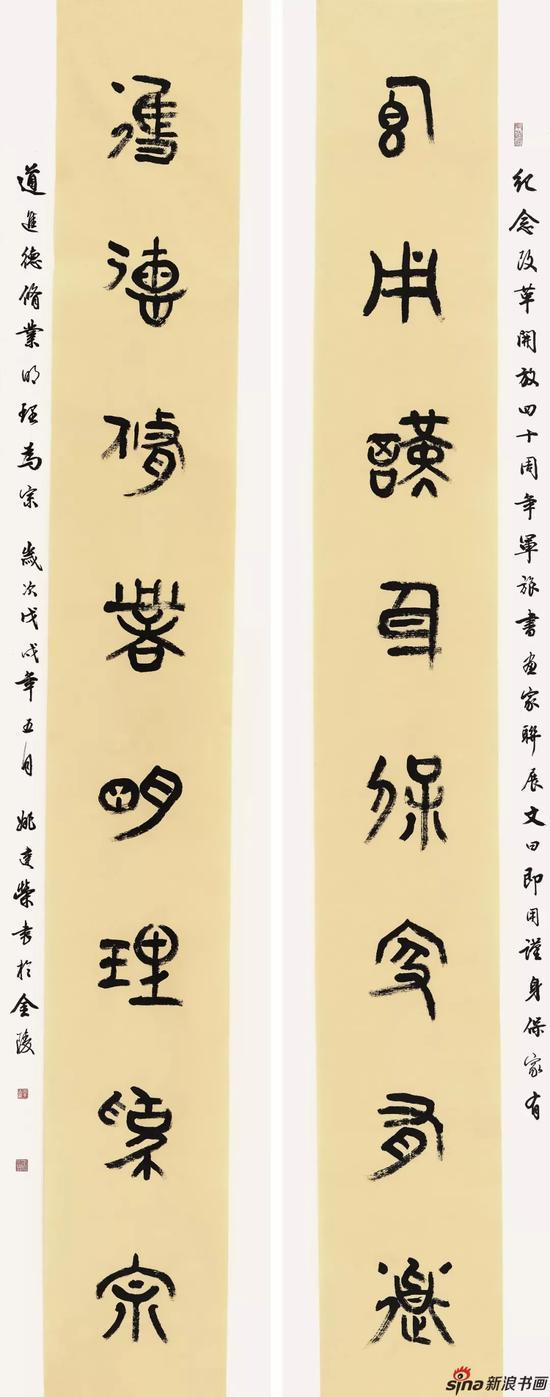 紀念改革開放四十周年軍旅書画家聯展文曰即用謹身保家有
即用謹身保家有道
進德脩業明理為宗
道進德脩業明理為宗 歲次戊戌年五月 姚建榮書於金陵
sina新浪书画